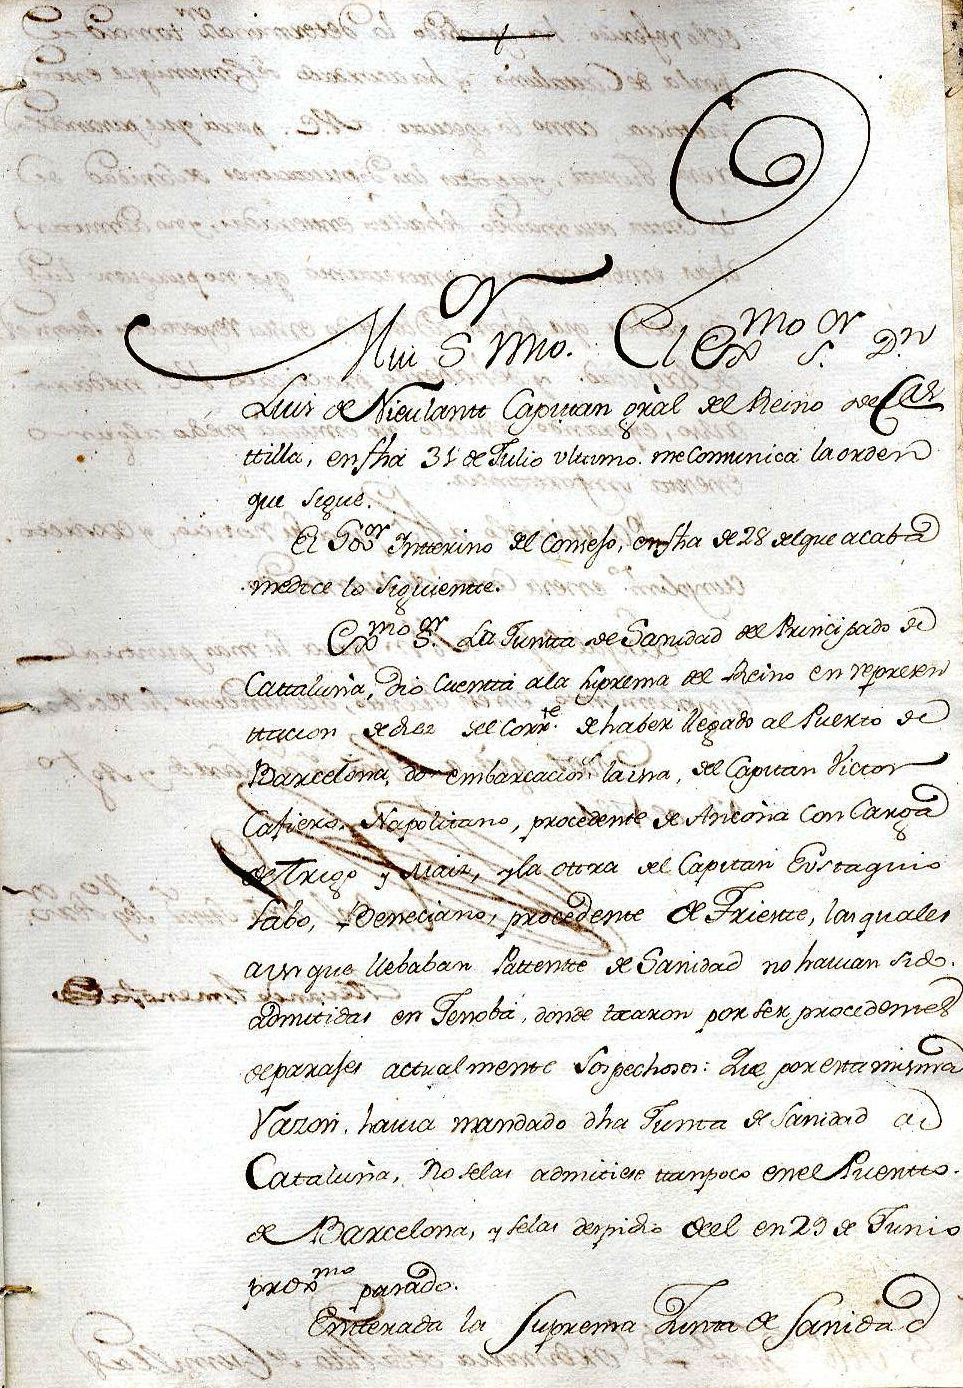 Mui S.or mio. El Ex.mo S.or D.n
Luis de Nieulantt Capitan gràl del Reino de Cas
ttilla, en fhà 31 de Julio ultimo. me comunica la orden
que sigue.
El Gov.or Intterino del Consejo, en fha de 28 del que acaba
me dice lo siguientte.
Ex.mo S.or La Juntta de Sanidad del Principado de
Cattaluña, dio cuentta a la Suprema del Reino en represen
ttacion de diez del corr.te de haber llegado al Puerto de
Barcelona, dos embarcacion.s la una, del Capitan Victor
Cafiero, Napolitano, procedente de Ancona con Carga
de Trigo y Maiz, y la ottra del Capitan Eustaquio
Sabo, Veneciano, procedente de Trieste, las quales
aunque llebaban Pattentte de Sanidad no havian sido
admitidas en Genoba, donde tocaron por ser procedentes
de parajes actualmente sospechosos: Que por esta misma
razon, havia mandado dha Junta de Sanidad de
Cataluña, no se las admitiese ttanpoco en el Puertto
de Barcelona, y se las despidio de el en 29 de Junio
prox.mo pasado.
Entterada la Suprema Junta de Sanidad